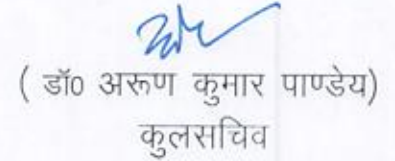 ( डॉ0 अरूण कुमार पाण्डेय)
कुलसचिव